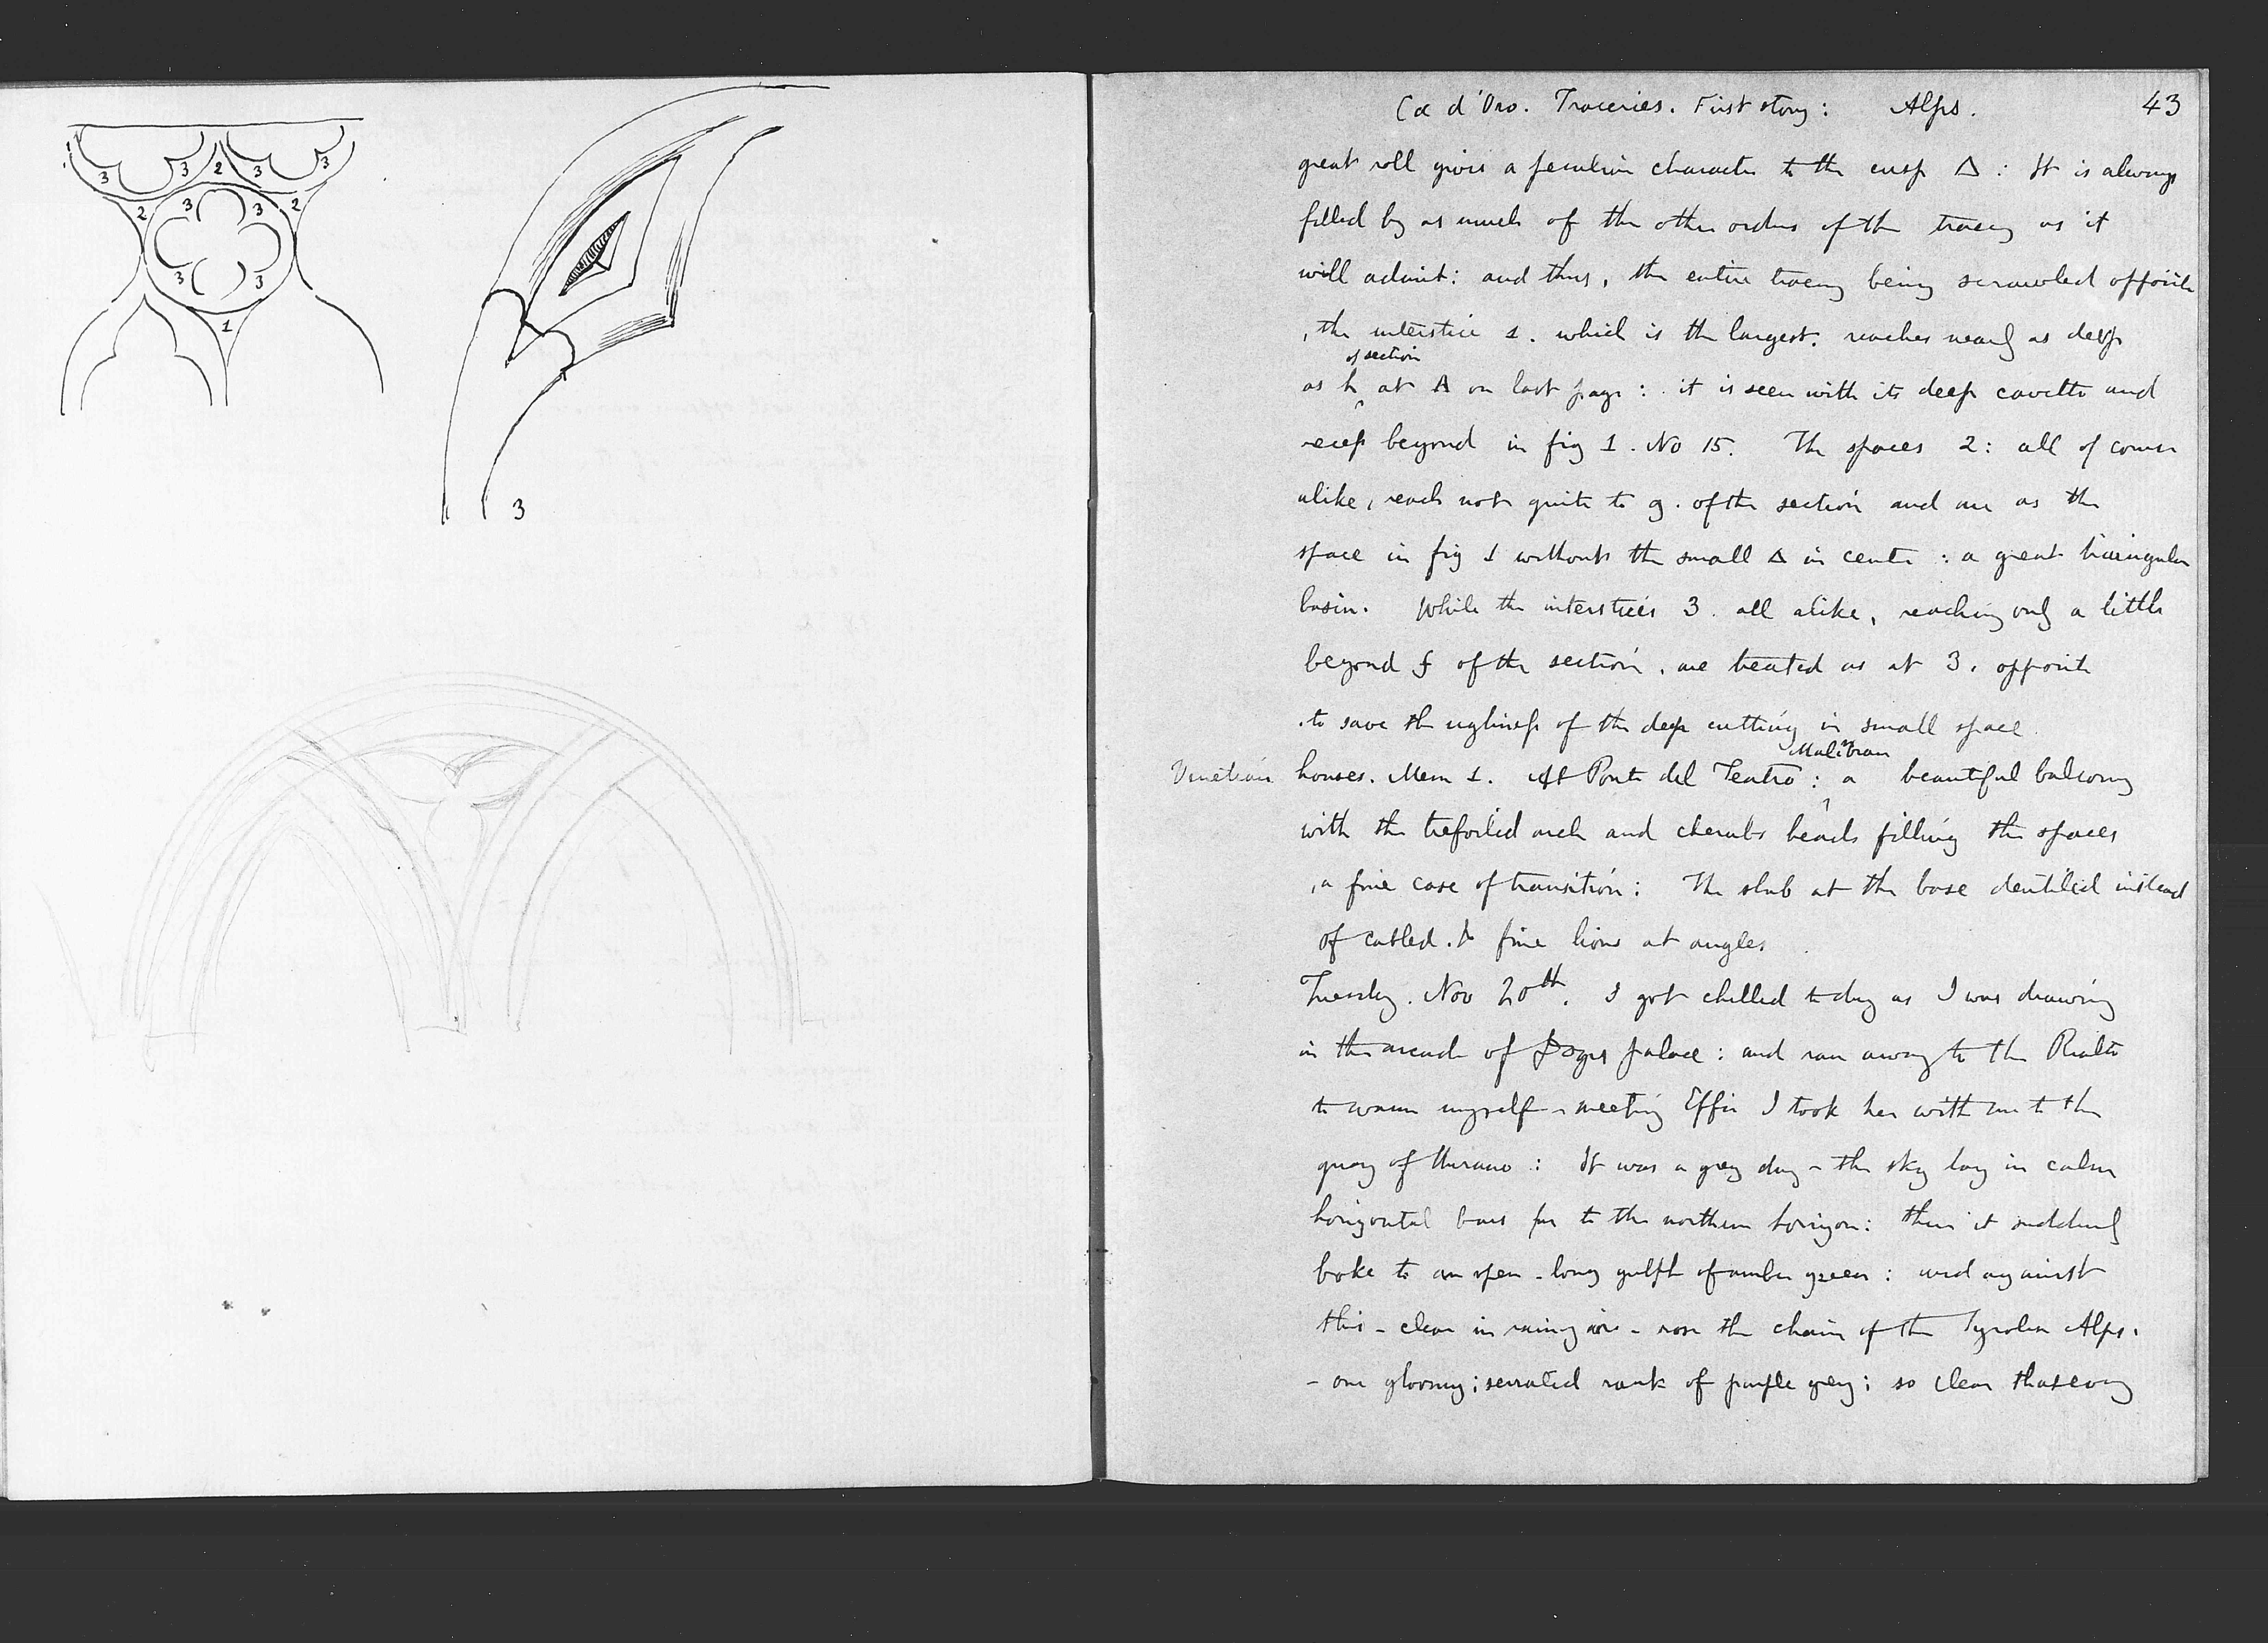 3 3 2 3 3
2 3 3 2
3 3
1
3
Ca d'Oro. Traceries. First story: Alps. 43
great roll gives a peculiar character to the cusp Δ : It is always
filled by as much of the other orders of the tracery as it
will admit: and thus, the entire tracery being scrawled opposite
, the interstice 1. which is the largest. reaches nearly as deep
of section
as h at A on last page : it is seen with its deep cavetto and
recess beyond in fig 1. No 15. The spaces 2: all of course
alike, reach not quite to g. of the section and are as the
space in fig 1 without the small Δ in centre : a great triangular
basin. While the interstices 3. all alike, reaching only a little
beyond f of the section, are treated as at 3. opposite
. to save the ugliness of the deep cutting in small space.
Malibran
Venetian houses. Mem 1. At Ponte del Teatro : a beautiful balcony
with the trefoiled arch and cherubs heads filling the spaces
, a fine case of transition: The slab at the base dentiled instead
of cabled. & fine lions at angles.
Tuesday. Nov 20th. I got chilled today as I was drawing
in the arcade of Doges palace : and ran away to the Rialto
to warm myself - meeting Effie I took her with me to the
quay of Murano : It was a grey day - the sky lay in calm
horizontal bars far to the northern horizon: then it suddenly
boke to an open - long gulph of amber green : and against
this - clear in rainy air - rose the chain of the Tyrolese Alps.
- one gloomy; serrated rank of purple grey; so clear that every